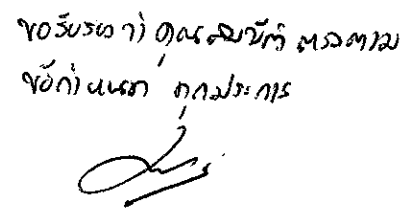 ขอรับรองว่า คุณสมบัติ ตรงตาม
ข้อกำหนด ทุกประการ